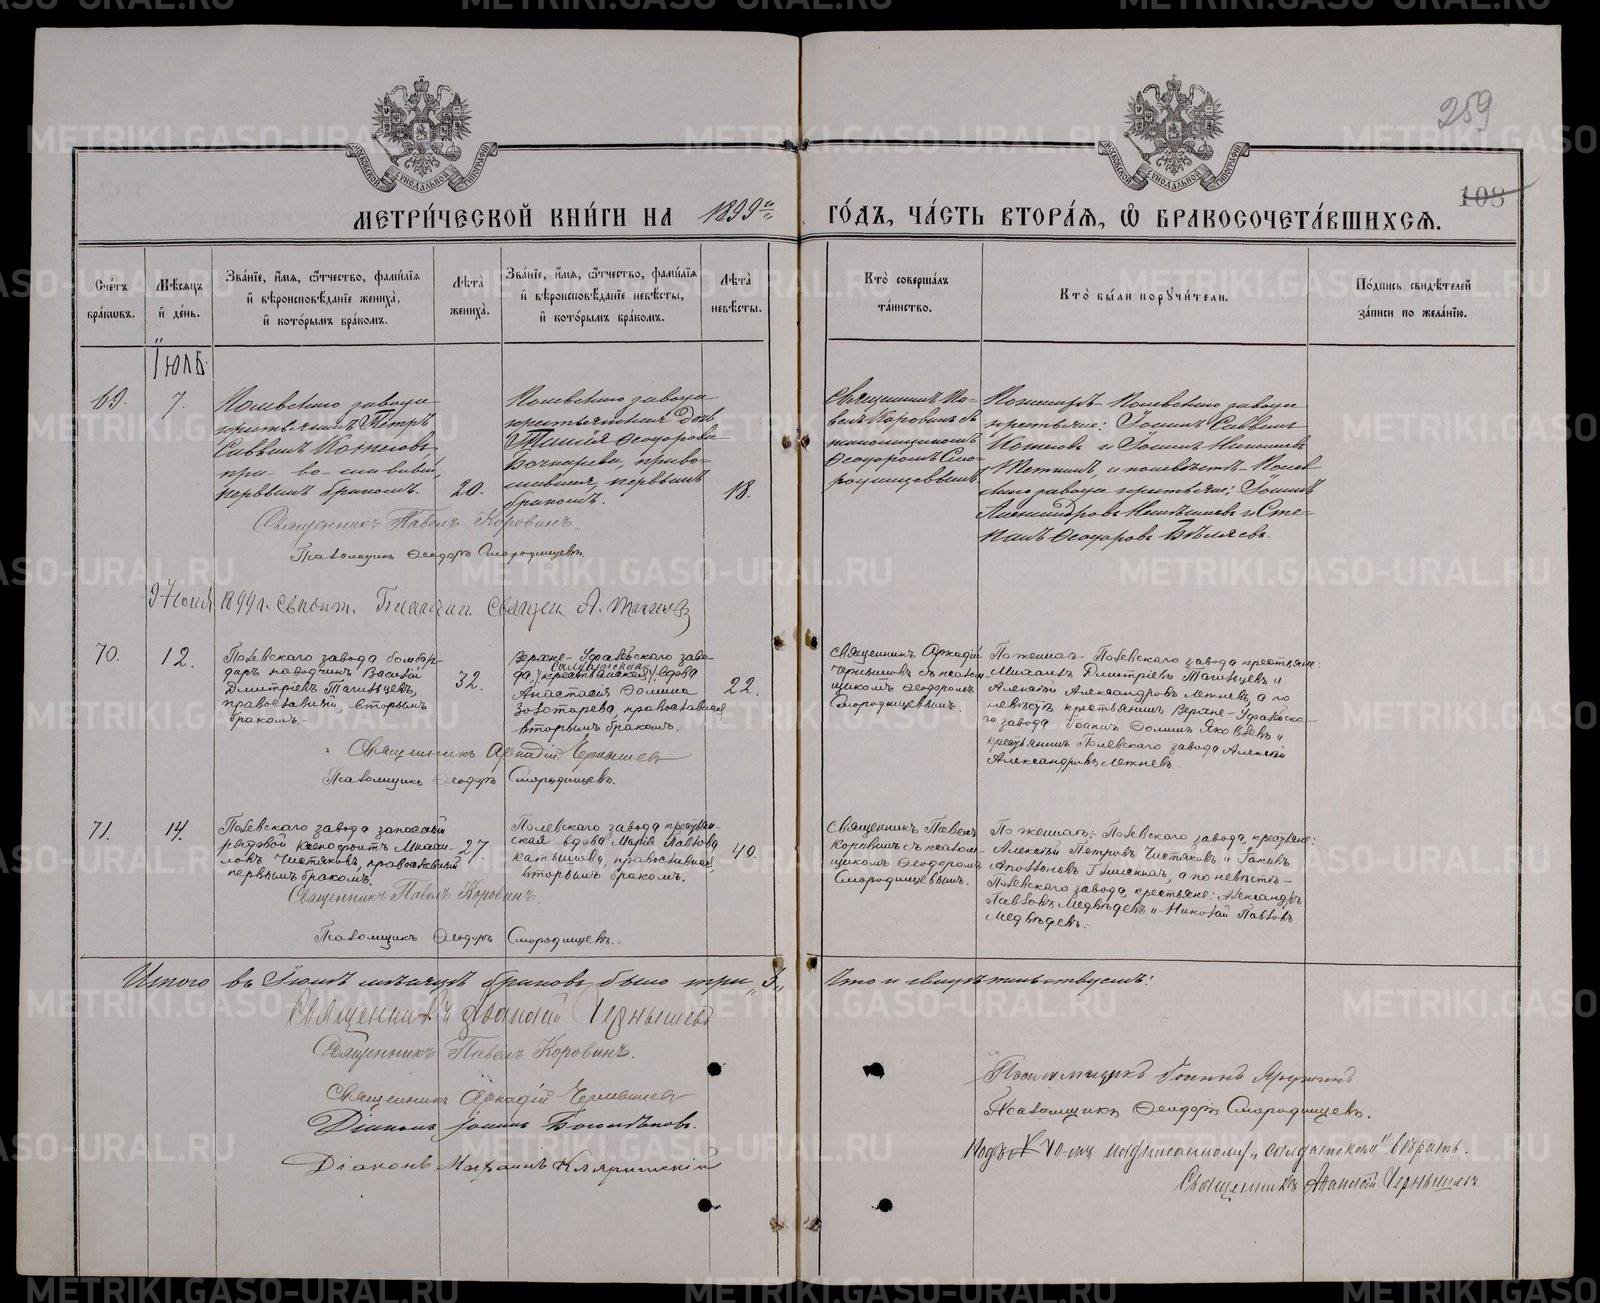 259
108
МЕТРИЧЕСКОЙ КНИГИ НА 1899й ГОДЪ, ЧАСТЬ ВТОРАЯ, Ѡ БРАКОСОЧЕТАВШИХСЯ.
Счетъ браковъ.
Мѣсяцъ и день.
Званіе, имя, отчество, фамилія и вѣроисповѣданіе жениха, и которымъ бракомъ.
Лѣта жениха.
Званіе, имя, отчество, фамилія и вѣроисповѣданіе невѣсты, и которымъ бракомъ.
Лѣта невѣсты.
Кто совершалъ таинство.
Кто были поручители.
Подпись свидѣтелей записи по желанію.
Іюль.
69.
7.
Полевского завода
крестьянинъ Петръ
Саввинъ
православный,
первымъ бракомъ.
20.
Полевского завода
крестьянская дочь
Ѳеодорова
Бочкарева, право-
славная, первымъ
бракомъ.
18.
Священникъ Па-
велъ Коровинъ съ
псаломщикомъ
Ѳеодоромъ Смо-
родинцевымъ
По женихѣ Полевского завода
крестьяне: Іоаннъ Саввинъ
и Іоаннъ
и по невѣстѣ Полев-
ского завода крестьяне: Іоаннъ
Александровъ и Сте-
панъ Ѳеодоровъ Бѣляевъ.
Священникъ Павелъ Коровинъ.
Псаломщикъ Ѳеодоръ Смородинцевъ.
1899 г.
70.
12.
Полевского завода бомбар-
диръ наводчикъ Василій
Димитріевъ Талынцевъ,
православный, вторымъ
бракомъ.
32.
Верхне-Уфалейскаго заво-
да, солдатская (крестьянская) вдова
Анастасія Ѳомина
Золотарева, православная,
вторымъ бракомъ.
22.
Священникъ Аркадій
Чернышевъ съ псалом-
щикомъ Ѳеодоромъ
Смородинцевымъ.
По женихѣ Полевского завода крестьяне:
Михаилъ Димитріевъ Талынцевъ и
Алексѣй Александровъ Лежневъ, а по
невѣстѣ крестьянинъ Верхне-Уфалейска-
го завода Іоакимъ Ѳоминъ Яковлевъ и
крестьянинъ Полевского завода Алексѣй
Александровъ Лежневъ.
Священникъ Аркадій Чернышевъ
Псаломщикъ Ѳеодоръ Смородинцевъ.
71.
14.
Полевского завода запасный
рядовой Ксенофонтъ Михаи-
ловъ Чистяковъ, православный
первымъ бракомъ.
27.
Полевского завода крестьян-
ская вдова Марія Павлова
Катышова, православная,
вторымъ бракомъ.
40.
Священникъ Павелъ
Коровинъ съ псалом-
щикомъ Ѳеодоромъ
Смородинцевымъ.
По женихѣ: Полевского завода, крестьяне:
Алексѣй Петровъ Чистяковъ и Іаковъ
а по невѣстѣ-
Полевского завода, крестьяне: Александръ
Павловъ Медвѣдевъ и Николай Павловъ
Медвѣдевъ.
Священникъ Павелъ Коровинъ.
Псаломщикъ Ѳеодоръ Смородинцевъ.
Итого въ Іюлѣ мѣсяцѣ браковъ было три „3„ Что и свидѣтельствуемъ:
Священникъ Чернышевъ
Священникъ Павелъ Коровинъ.
Священникъ Аркадій Чернышевъ
Діаконъ Іоаннъ
Діаконъ Михаилъ
Псаломщикъ Іоаннъ
Псаломщикъ Ѳеодоръ Смородинцевъ.
Подъ № 70-мъ надписанному „солдатская" вѣрить.
Священникъ Чернышевъ
METRIKI.GASO-URAL.RU